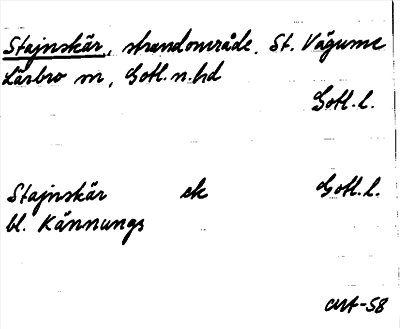 Stajnskär, strandområde. St. Vägume
Lärbro sn, Gotl. n. hd
Gotl. l.
Stajnskär ek Gotl. l.
bl. Kännungs
-58